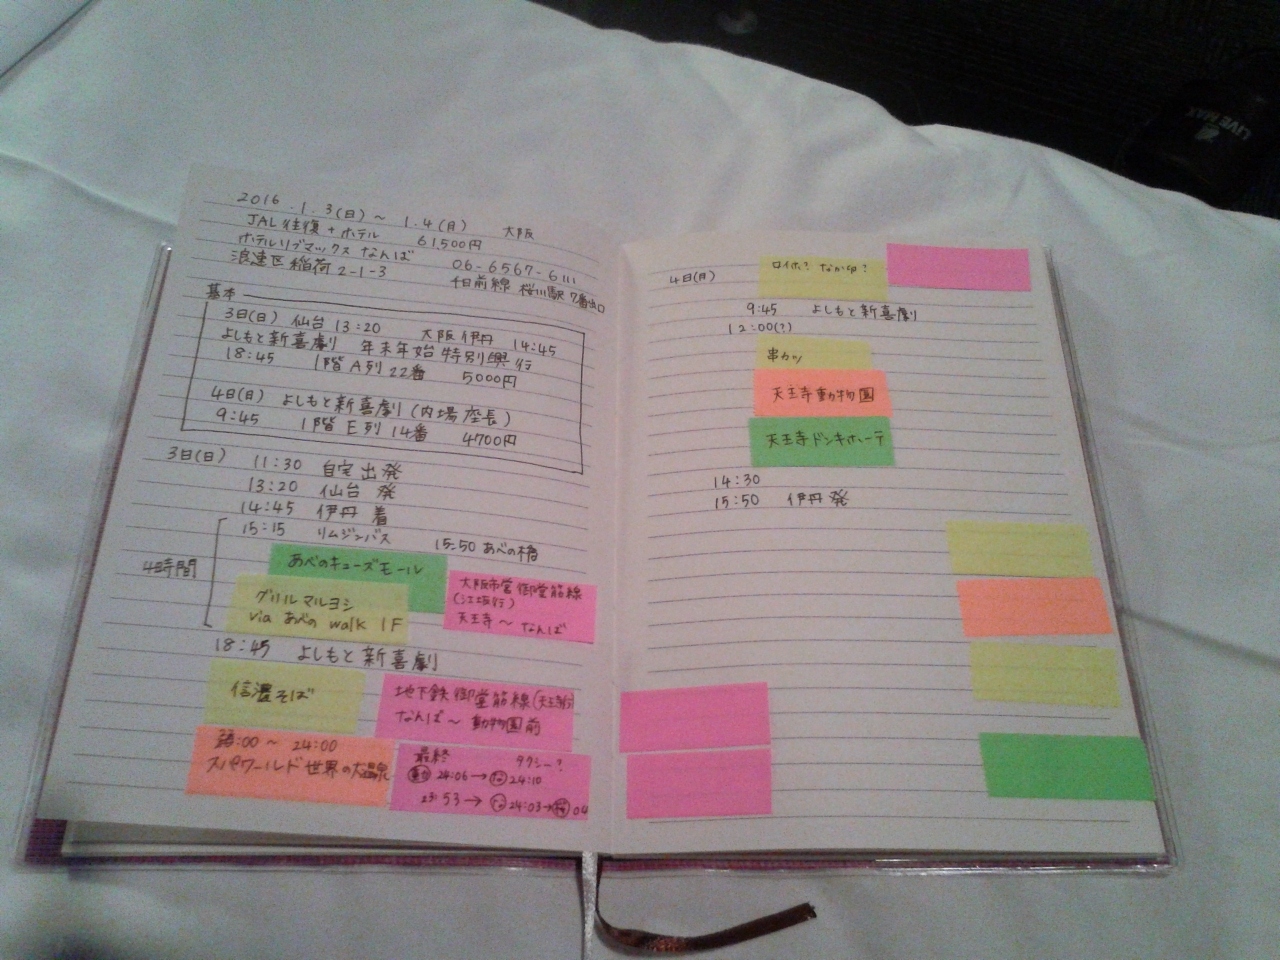 2016.1.3(日)～ 1.4(月) 大阪
JAL往復+ホテル 61,500円
ホテルリブマックス なんば 06-6567-6111
浪速区稲荷2-1-3 千日前線 桜川駅 7番出口
基本
3日(日) 仙台 13:20 大阪伊丹 14:45
よしもと新喜劇 年末年始特別興行
18:45 1階A列22番 5000円
4日(月) よしもと新喜劇(内場座長)
9:45 1階E列14番 4700円
3日(日) 11:30 自宅出発
13:20 仙台 発
14:45 伊丹 着
15:15 リムジンバス 15:50 あべの橋
4時間
あべのキューズモール
グリルマルヨシ
via あべの walk 1F
大阪市営御堂筋線
(江坂行)
天王寺～なんば
18:45 よしもと新喜劇
信濃そば
地下鉄御堂筋線(天王寺行)
なんば～動物園前
:00～24:00
スパワールド世界の大温泉
最終 タクシー?
動 24:06→な 24:10
23:53→な 24:03→桜 04
4日(月)
ロイホ? なか卯?
9:45 よしもと新喜劇
12:00(?)
串カツ
天王寺動物園
天王寺ドンキホーテ
14:30
15:50 伊丹発
LIVE MAX